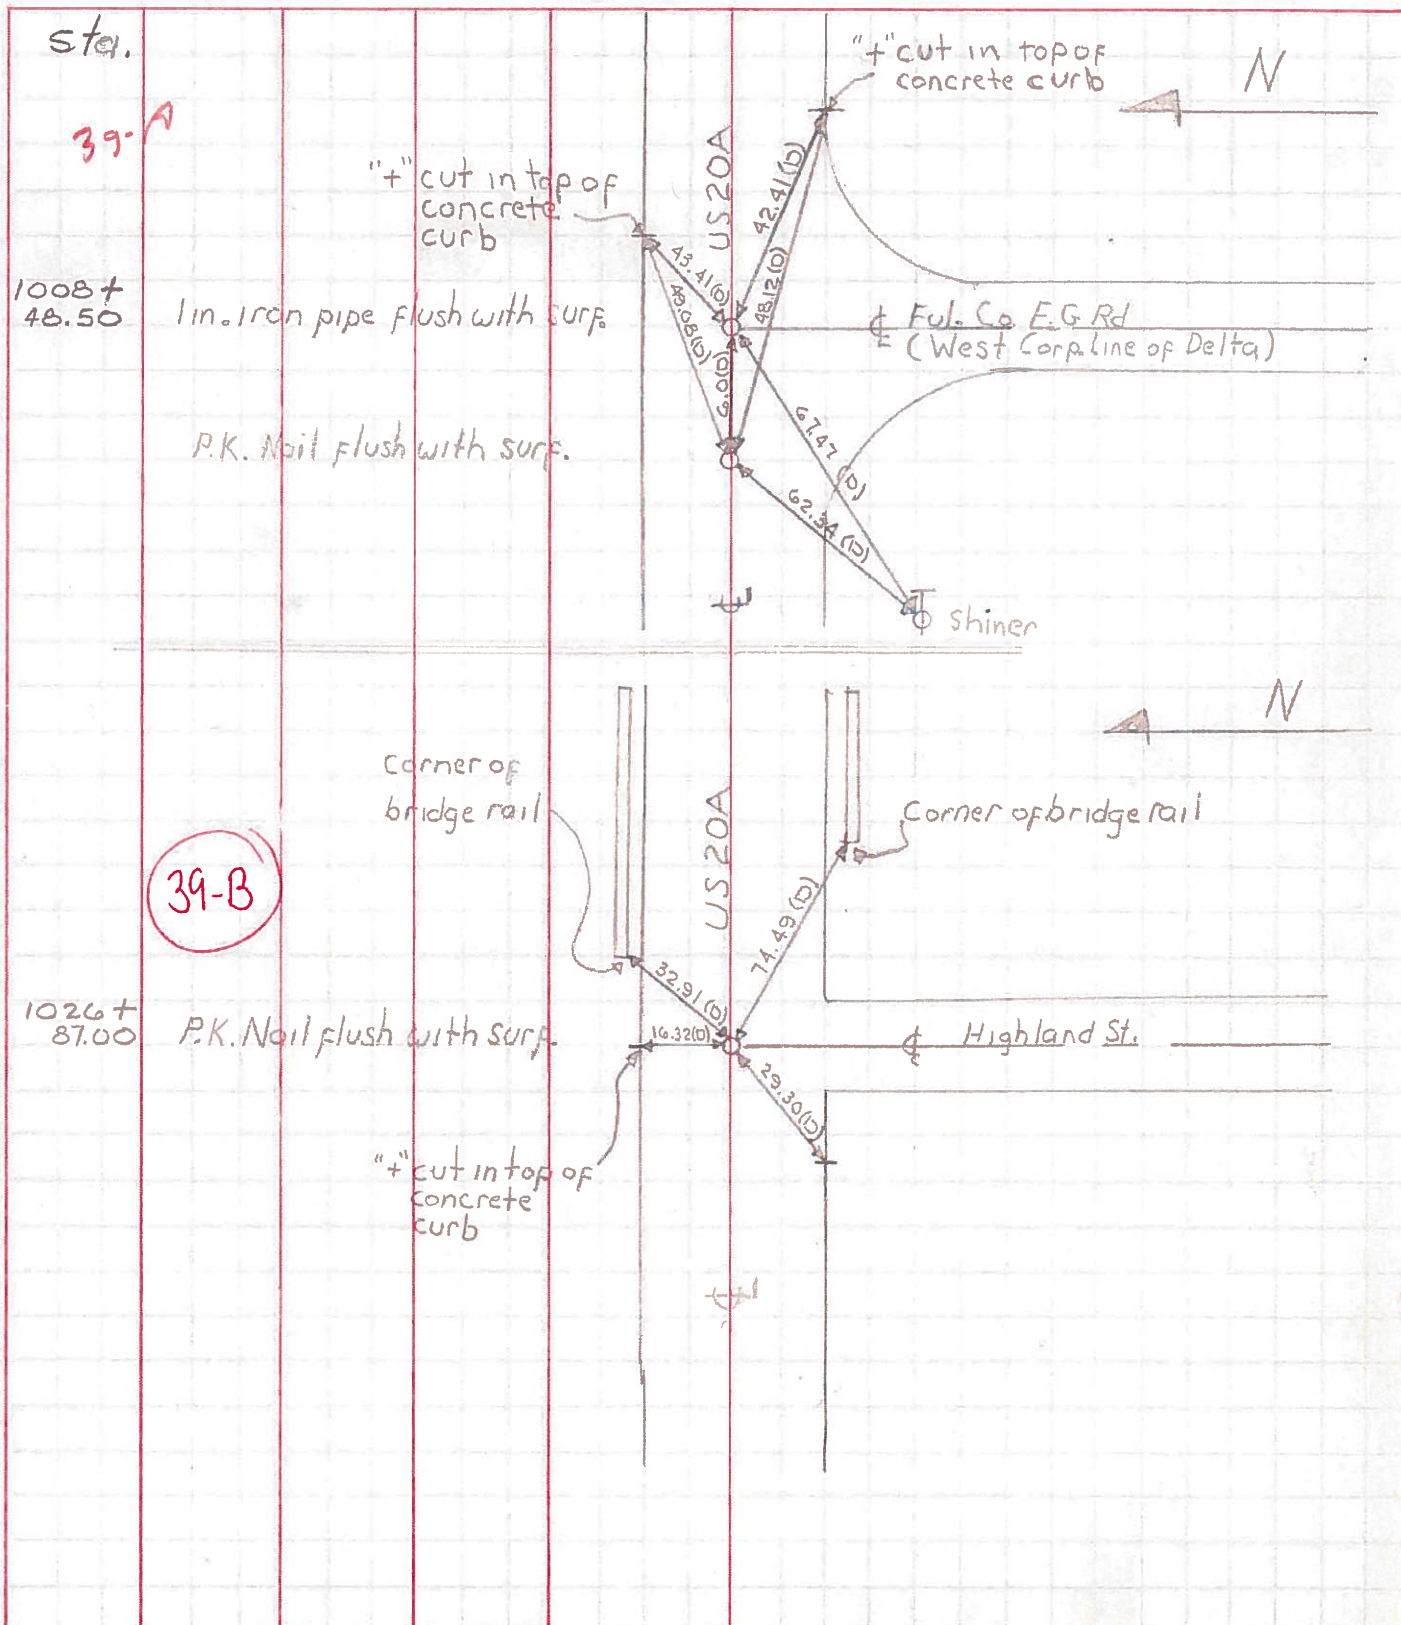 Sta.
39-A
"+" cut in top of
concrete curb
N
"+" cut in top of
concrete
curb
US 20A
42.41(D)
43.41(D)
48.12(D)
1008+
48.50
1 in. iron pipe flush with surf.
6.0(D)
℄ Ful. Co. E.G Rd
(West Corp. line of Delta)
67.47 (D)
P.K. Nail flush with surf.
62.34 (D)
Shiner
N
Corner of
bridge rail
US 20A
Corner of bridge rail
39-B
74.49 (D)
32.91 (D)
1026+
87.00
P.K. Nail flush with surf.
16.32(D)
℄ Highland St.
29.30(D)
"+" cut in top of
concrete
curb